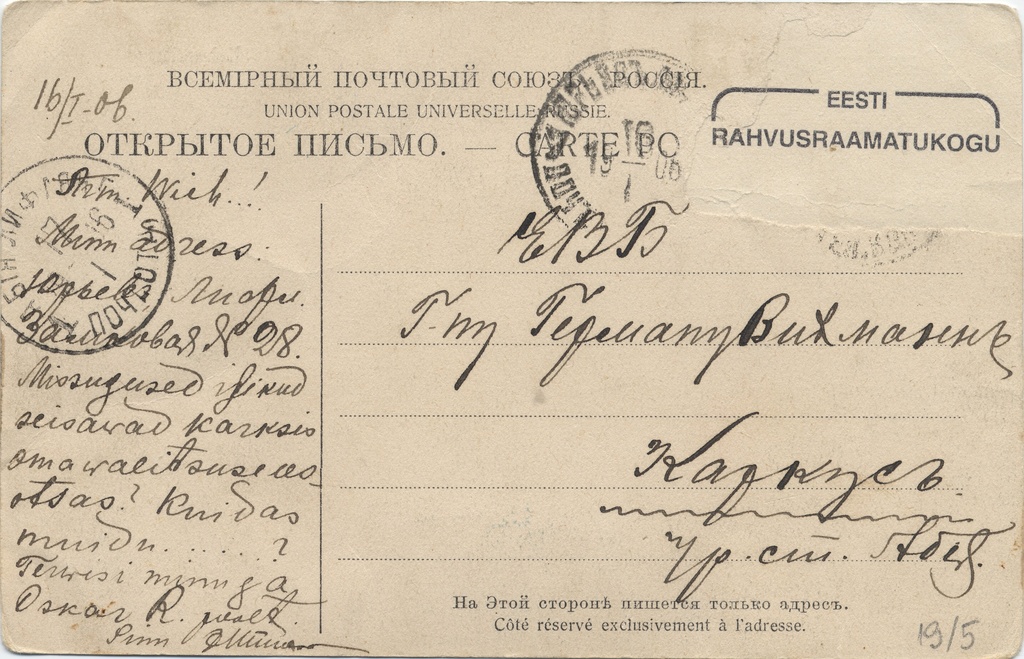 16/I-06.
ВСЕМІРНЫЙ ПОЧТОВЫЙ СОЮЗЪ. РОССІЯ.
UNION POSTALE UNIVERSELLE. RUSSIE.
ОТКРЫТОЕ ПИСЬМО. — CARTE PO
EESTI
RAHVUSRAAMATUKOGU
19 18 06
I
Arm. Wich!
Minu adress:
Юрьевъ Лифл.
№ 28.
Missugused isikud
seisawad Karksis
omawalitsuse ees-
otsas? Kuidas
muidu......?
Terwisi minuga
Oskar R. poolt.
Sinu
ЕВБ
Г-ну Герману Вихманнъ
Каркусъ
чр. ст. Абія.
На Этой сторонѣ пишется только адресъ.
Côté réservé exclusivement à l'adresse.
19/5